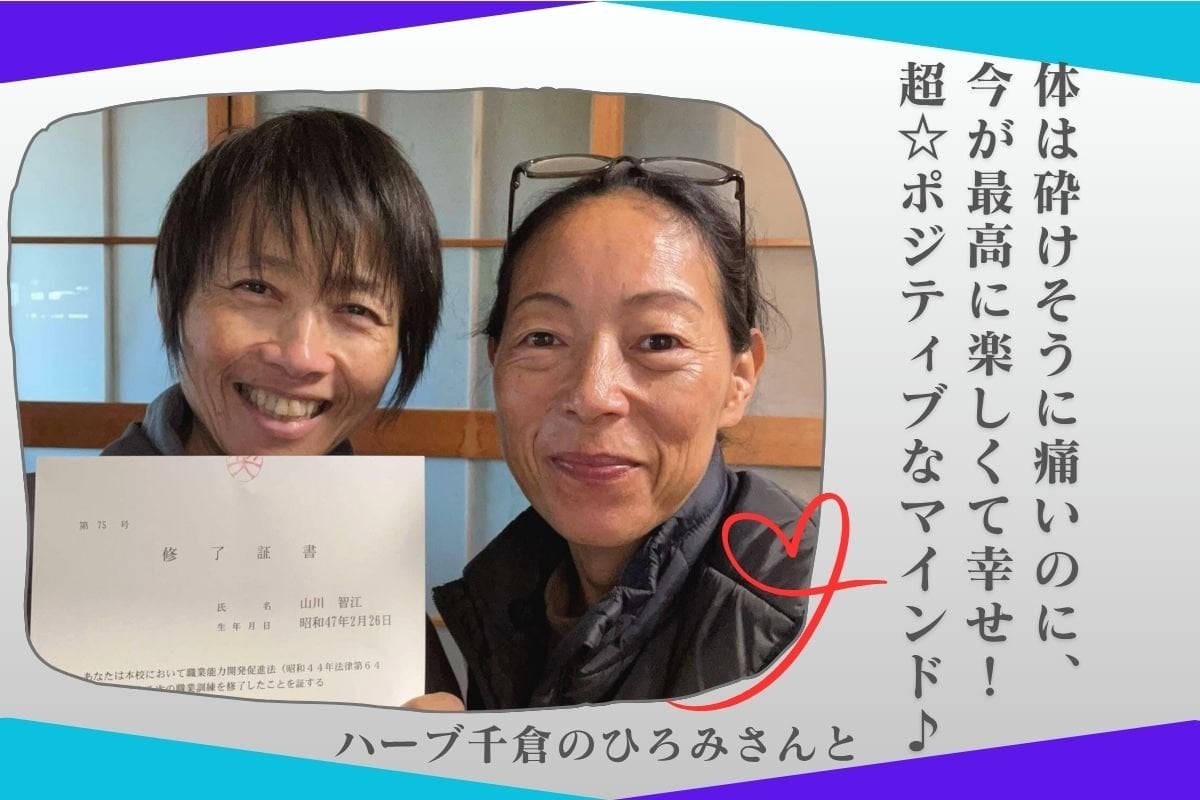 体は砕けそうに痛いのに、
今が最高に楽しくて幸せ！
超☆ポジティブなマインド♪
第 75 号
修了証書
氏名 山川 智江
生年月日 昭和47年2月26日
あなたは本校において職業能力開発促進法（昭和44年法律第64
の職業訓練を修了したことを証する
ハーブ千倉のひろみさんと